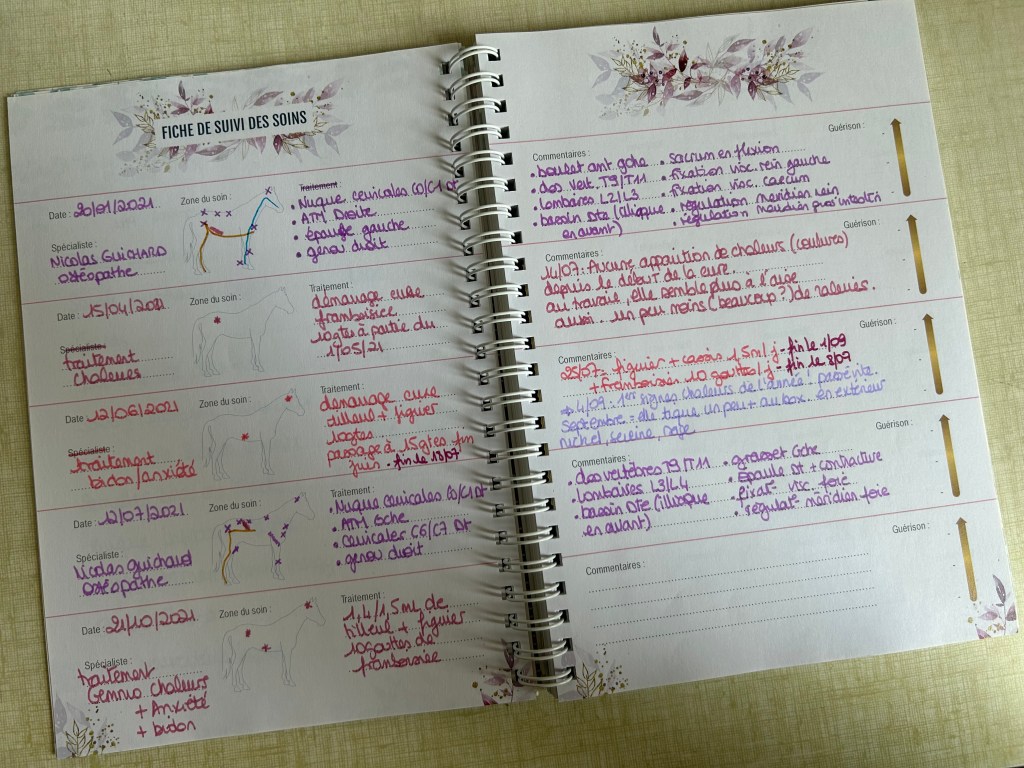 FICHE DE SUIVI DES SOINS
Date : 20/01/2021
Zone du soin :
Traitement :
• Nuque cervicales C0/C1 DT
• ATM Droite
• épaule gauche
• genou droit
Spécialiste :
Nicolas GUICHARD
Ostéopathe
Date : 15/04/2021
Zone du soin :
Traitement :
démarrage cure
framboisier
10gtes à partir du
17/05/21
Spécialiste :
traitement
chaleurs
Date : 12/06/2021
Zone du soin :
Traitement :
démarrage cure
tilleul + figuier
10gtes
passage à 15gtes fin
juin - fin le 13/07
Spécialiste :
traitement
bidon/anxiété
Date : 12/07/2021
Zone du soin :
Traitement :
• Nuque cervicales C0/C1 DT
• ATM Gche
• cervicales C6/C7 Dt
• genou droit
Spécialiste :
Nicolas Guichard
Ostéopathe
Date : 21/10/2021
Zone du soin :
Traitement :
tilleul + figuier
10 gouttes de
Spécialiste :
traitement
Gemmo chaleurs
+ Anxiété
+ bidon
Commentaires :
Guérison :
• boulet ant gche • sacrum en flexion
• dos vert. T9/T11 • fixation visc. rein gauche
• lombaires L2/L3 • fixation visc. caecum
• bassin Dte (iliaque • régulation méridien rein
en avant) • régulation méridien
Commentaires :
Guérison :
14/07 : Aucune apparition de chaleurs (coulures)
depuis le début de la cure.
au travail, elle semble plus à l'aise
aussi... un peu moins (beaucoup ?) de
Commentaires :
Guérison :
25/07 : figuier + cassis 1,5ml/j - fin le 1/09
+ framboisier 10 gouttes/j - fin le 8/09
→ 4/09 : 1ers signes chaleurs de l'année.
Septembre : elle tique un peu + au box. en extérieur
nickel, sereine,
Commentaires :
Guérison :
• dos vertèbres T9/T11 • grasset Gche
• lombaires L3/L4 • épaule DT + contractive
• bassin DTE (illiaque • fixat° visc. foie
en avant) • régulat° méridien foie
Commentaires :
Guérison :